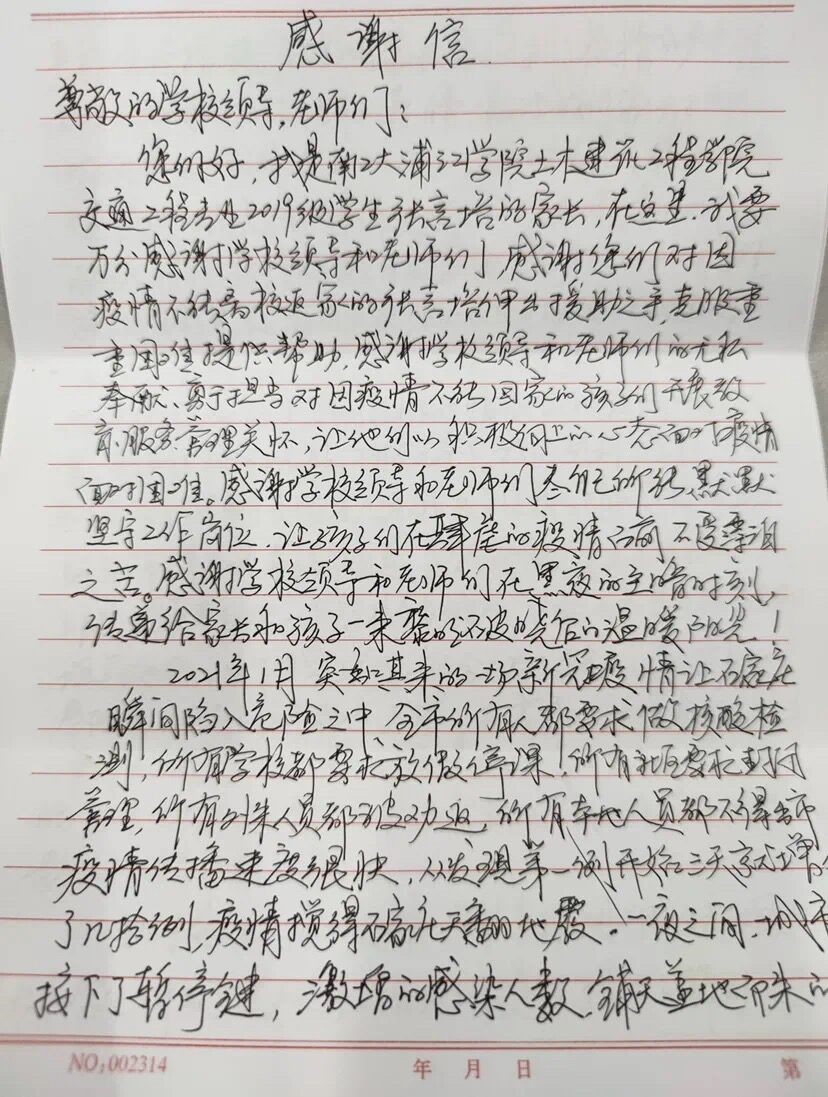 感谢信
尊敬的学校领导,老师们:
您们好,我是南工大浦江学院土木建筑工程学院
交通工程专业2019级学生张言培的家长,在这里,我要
万分感谢学校领导和老师们,感谢您们对因
疫情不能离校返家的张言培伸出援助之手,克服重
重困难提供帮助,感谢学校领导和老师们的无私
奉献、勇于担当对因疫情不能回家的孩子们开展教
育服务管理关怀,让他们以积极向上的心态面对疫情
面对困难。感谢学校领导和老师们尽己所能,默默
坚守工作岗位,让孩子们在肆虐的疫情面前不受漂泊
之苦。感谢学校领导和老师们在黑夜的至暗时刻,
传递给家长和孩子一束黎明破晓后的温暖阳光!
2021年1月突如其来的一场新冠疫情让石家庄
瞬间陷入危险之中 全市所有人都要求做核酸检
测,所有学校都要求放假停课,所有社区要求封闭
管理,所有外来人员都被劝返,所有本地人员都不得出市
疫情传播速度很快,从发现第一例开始三天就增
了几拾例,疫情搅得石家庄天翻地覆。一夜之间,城市
按下了暂停键,激增的感染人数、铺天盖地而来的
NO:002314 年 月 日 第